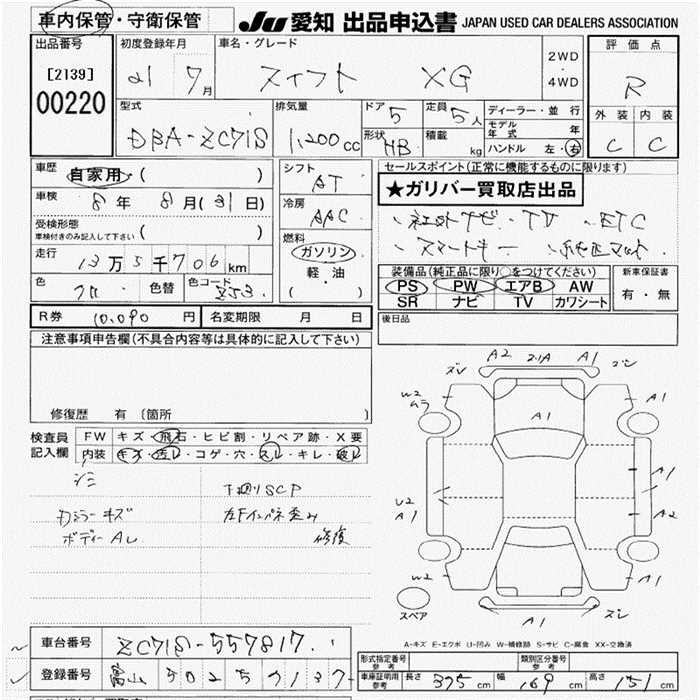 車内保管・守衛保管
JU 愛知 出品申込書 JAPAN USED CAR DEALERS ASSOCIATION
出品番号
[2139]
00220
初度登録年月
21 7月
車名・グレード
スイフト XG
2WD
・
4WD
評価点
R
外装 内装
C C
型式
DBA-ZC71S
排気量
1,200cc
ドア 5
形状 HB
定員 5人
積載 kg
ディーラー・並行
モデル年式 年
ハンドル 左・右
車歴
自家用・( )
車検
8年 8月(21日)
受検形態
車検付きのみ記入して下さい ( )
走行
13万5千706km
色
色替
色コード ZJ3
シフト
AT
冷房
AAC
燃料
ガソリン
軽・油
( )
セールスポイント(正常に機能するものに限ります)
★ガリバー買取店出品
、社外ナビ 、TV 、ETC
、スマートキー 、純正マット
装備品(純正品に限り○をつけてください)
PS PW エアB AW
SR ナビ TV カワシート
新車保証書
有・無
R券 10,090円
名変期限 月 日
後日品
注意事項申告欄(不具合内容等は具体的に記入して下さい)
修復歴 有 〔箇所
検査員
記入欄
FW キズ・飛石・ヒビ割・リペア跡・X要
内装 キズ・汚レ・コゲ・穴・スレ・キレ・破レ
シミ
下廻りSCP
カジラーキズ
左Fインパネ歪み
ボディーAし
修復
ズレ A2 A1 ズレ
W2
ムラ
A1
A1
A1
U2
A1
A2
W2
A1
A1
ズレ
スペア
A-キズ E-エクボ U-凹み W-補修跡 S-サビ C-腐食 XX-交換済
車台番号
ZC71S-557817
登録番号
富山 502 5 2137
形式指定番号
参考
類別区分番号
参考
車庫証明用
参考
長さ 375cm
幅 169cm
高さ 151cm